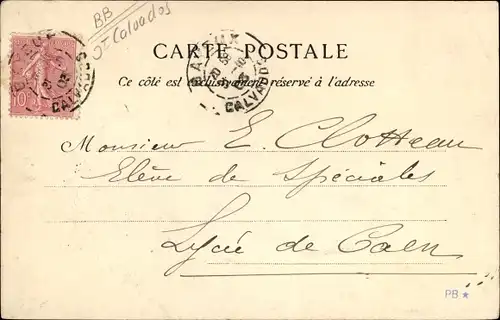 BB
Calvados
CARTE POSTALE
BAYEUX
CALVADOS
Ce côté est exclusivement réservé à l'adresse
CALVADOS
10
Monsieur E. Clotteau
Elève de Spéciales
Lycée de Caen
PB ★